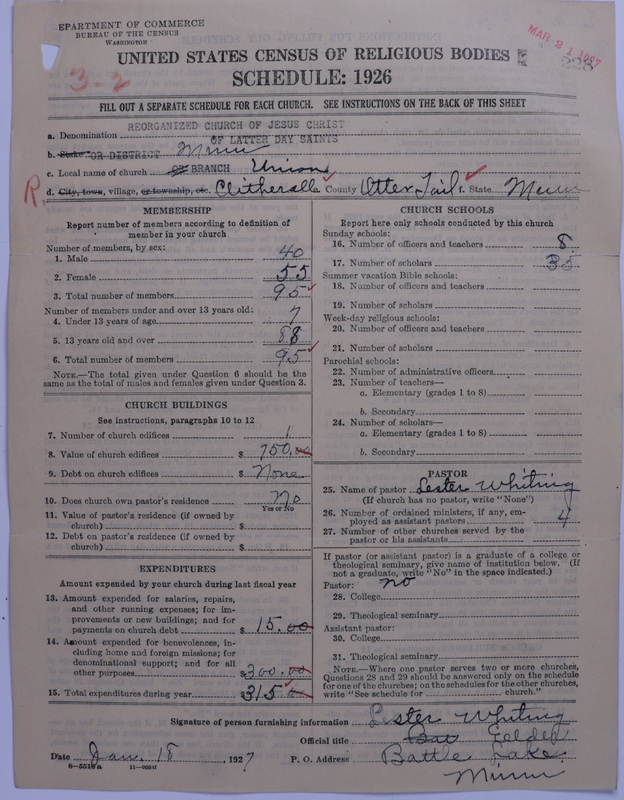 EPARTMENT OF COMMERCE
BUREAU OF THE CENSUS
WASHINGTON
MAR 21 1927
228
UNITED STATES CENSUS OF RELIGIOUS BODIES
SCHEDULE: 1926
3-2
FILL OUT A SEPARATE SCHEDULE FOR EACH CHURCH. SEE INSTRUCTIONS ON THE BACK OF THIS SHEET
a. Denomination REORGANIZED CHURCH OF JESUS CHRIST
OF LATTER DAY SAINTS
b. State OR DISTRICT Minn
c. Local name of church OR BRANCH Union
R d. City, town, village, or township, etc. Clitherall County Otter Tail f. State Minn
MEMBERSHIP
Report number of members according to definition of
member in your church
Number of members, by sex:
1. Male 40
2. Female 55
3. Total number of members 95
Number of members under and over 13 years old:
4. Under 13 years of age 7
5. 13 years old and over 88
6. Total number of members 95
NOTE.—The total given under Question 6 should be the
same as the total of males and females given under Question 3.
CHURCH BUILDINGS
See instructions, paragraphs 10 to 12
7. Number of church edifices 1
8. Value of church edifices $ 750.00
9. Debt on church edifices $ None
10. Does church own pastor's residence No
Yes or No
11. Value of pastor's residence (if owned by
church) $
12. Debt on pastor's residence (if owned by
church) $
EXPENDITURES
Amount expended by your church during last fiscal year
13. Amount expended for salaries, repairs,
and other running expenses; for im-
provements or new buildings; and for
payments on church debt $ 15.00
14. Amount expended for benevolences, in-
cluding home and foreign missions; for
denominational support; and for all
other purposes $300.00
15. Total expenditures during year $315
CHURCH SCHOOLS
Report here only schools conducted by this church
Sunday schools:
16. Number of officers and teachers 8
17. Number of scholars 35
Summer vacation Bible schools:
18. Number of officers and teachers
19. Number of scholars
Week-day religious schools:
20. Number of officers and teachers
21. Number of scholars
Parochial schools:
22. Number of administrative officers
23. Number of teachers—
a. Elementary (grades 1 to 8)
b. Secondary
24. Number of scholars—
a. Elementary (grades 1 to 8)
b. Secondary
PASTOR
25. Name of pastor Lester Whiting
(If church has no pastor, write "None")
26. Number of ordained ministers, if any, em-
ployed as assistant pastors 4
27. Number of other churches served by the
pastor or his assistants
If pastor (or assistant pastor) is a graduate of a college or
theological seminary, give name of institution below. (If
not a graduate, write "No" in the space indicated.)
Pastor: no
28. College
29. Theological seminary
Assistant pastor:
30. College
31. Theological seminary
NOTE.—Where one pastor serves two or more churches,
Questions 28 and 29 should be answered only on the schedule
for one of the churches; on the schedules for the other churches,
write "See schedule for church."
Signature of person furnishing information Lester Whiting
Official title Elder
Date Jan. 18, 1927 P. O. Address Battle Lake
8—5518a 11—9054f Minn